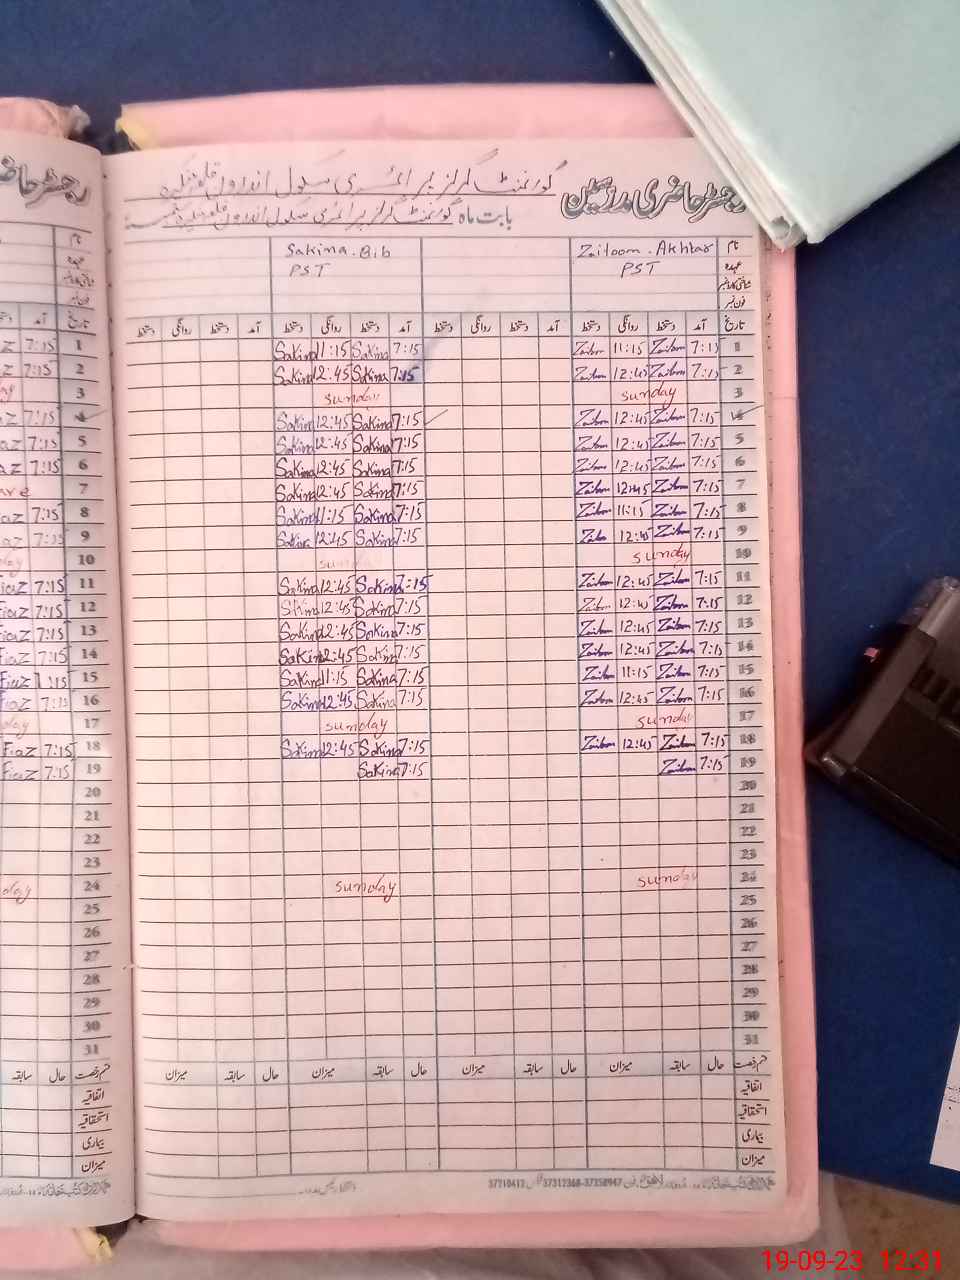 رجسٹر حاضری مدرسین گورنمنٹ گرلز پرائمری سکول اندرون قلعہ
بابت ماہ گورنمنٹ گرلز پرائمری سکول اندرون قلعہ
نام Zaitoom . Akhtar Sakina . Bib
عہدہ PST PST
شناختی کارڈ نمبر
فون نمبر
تاریخ آمد دستخط روانگی دستخط آمد دستخط روانگی دستخط آمد دستخط روانگی دستخط آمد دستخط روانگی دستخط
7:15 1 Sakina 11:15 Sakina 7:15 Zaitoon 11:15 Zaitoon 7:15 1
7:15 2 Sakina 12:45 Sakina 7:15 Zaitoon 12:45 Zaitoon 7:15 2
3 sunday sunday 3
7:15 4 Sakina 12:45 Sakina 7:15 Zaitoon 12:45 Zaitoon 7:15 4
7:15 5 Sakina 12:45 Sakina 7:15 Zaitoon 12:45 Zaitoon 7:15 5
7:15 6 Sakina 12:45 Sakina 7:15 Zaitoon 12:45 Zaitoon 7:15 6
7 Sakina 12:45 Sakina 7:15 Zaitoon 12:45 Zaitoon 7:15 7
7:15 8 Sakina 11:15 Sakina 7:15 Zaitoon 11:15 Zaitoon 7:15 8
7:15 9 Sakina 12:45 Sakina 7:15 Zaitoon 12:45 Zaitoon 7:15 9
10 sunday sunday 10
Fiaz 7:15 11 Sakina 12:45 Sakina 7:15 Zaitoon 12:45 Zaitoon 7:15 11
Fiaz 7:15 12 Sakina 12:45 Sakina 7:15 Zaitoon 12:45 Zaitoon 7:15 12
Fiaz 7:15 13 Sakina 12:45 Sakina 7:15 Zaitoon 12:45 Zaitoon 7:15 13
Fiaz 7:15 14 Sakina 12:45 Sakina 7:15 Zaitoon 12:45 Zaitoon 7:15 14
Fiaz 15 Sakina 11:15 Sakina 7:15 Zaitoon 11:15 Zaitoon 7:15 15
Fiaz 7:15 16 Sakina 12:45 Sakina 7:15 Zaitoon 12:45 Zaitoon 7:15 16
17 sunday sunday 17
Fiaz 7:15 18 Sakina 12:45 Sakina 7:15 Zaitoon 12:45 Zaitoon 7:15 18
Fiaz 7:15 19 Sakina 7:15 Zaitoon 7:15 19
20 20
21 21
22 22
23 23
24 sunday sunday 24
25 25
26 26
27 27
28 28
29 29
30 30
31 31
قسم رخصت حال سابقہ میزان حال سابقہ میزان حال سابقہ میزان حال سابقہ میزان
اتفاقیہ
استحقاقیہ
بیماری
میزان
37312368-37350947
19-09-23 12:31